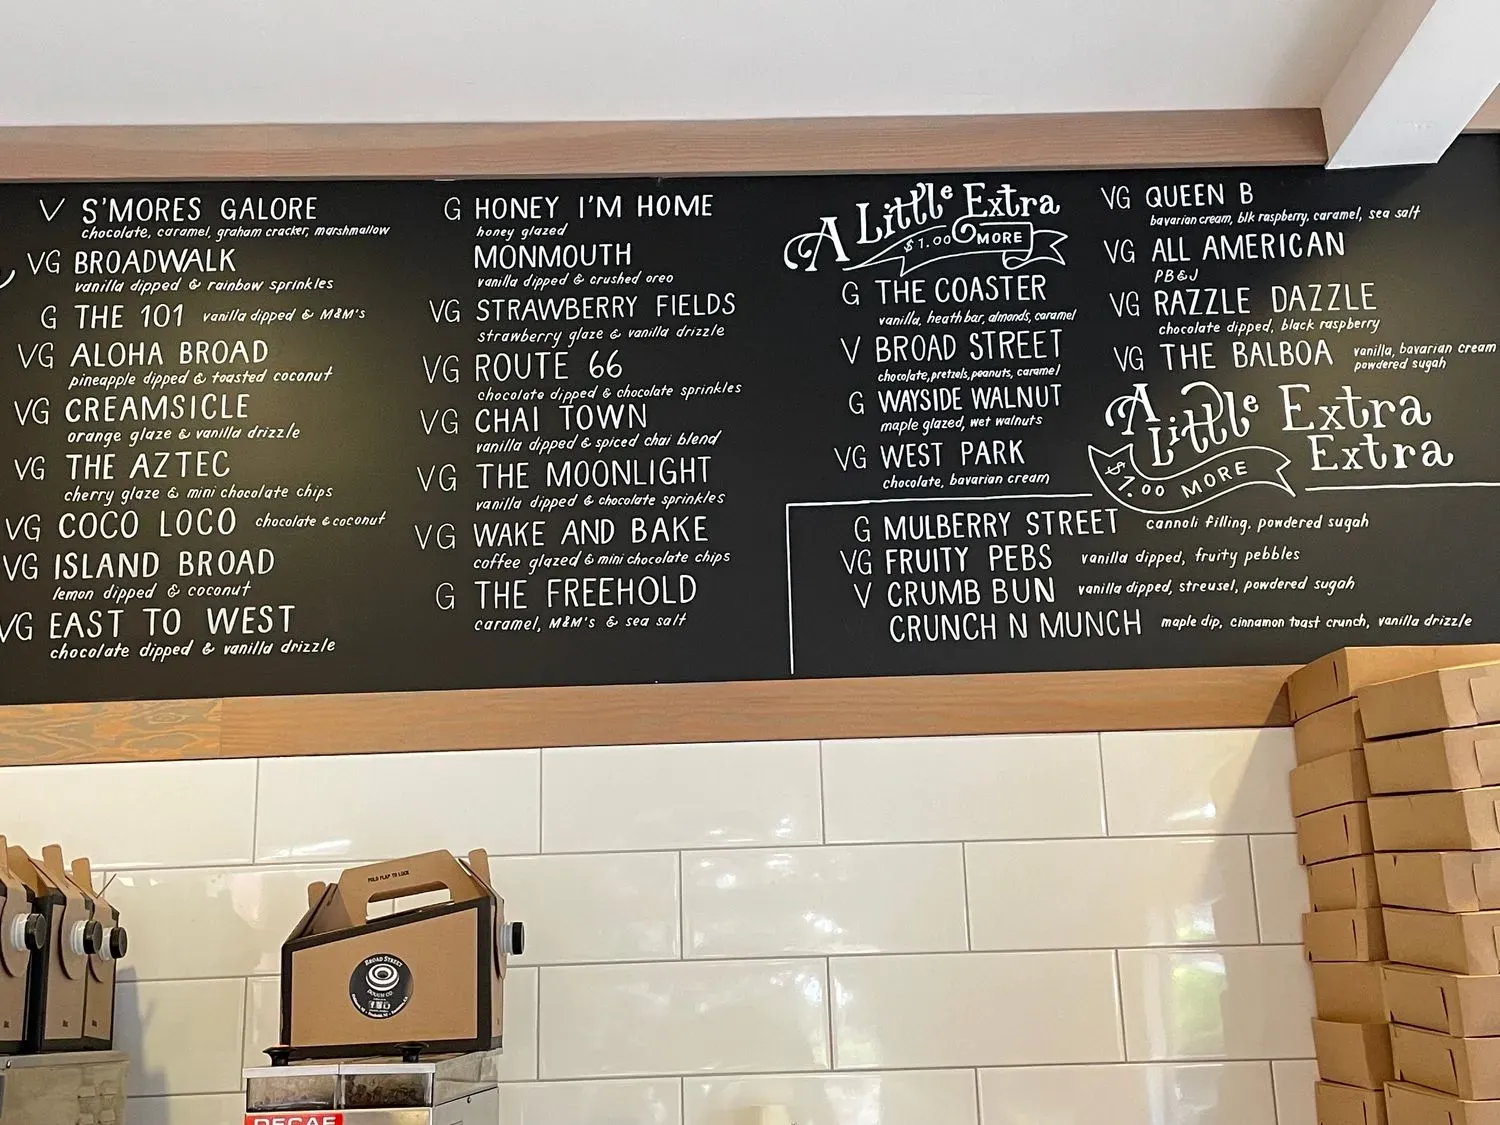 V S'MORES GALORE
chocolate, caramel, graham cracker, marshmallow
VG BROADWALK
vanilla dipped & rainbow sprinkles
G THE 101 vanilla dipped & M&M's
VG ALOHA BROAD
pineapple dipped & toasted coconut
VG CREAMSICLE
orange glaze & vanilla drizzle
VG THE AZTEC
cherry glaze & mini chocolate chips
VG COCO LOCO chocolate & coconut
VG ISLAND BROAD
lemon dipped & coconut
VG EAST TO WEST
chocolate dipped & vanilla drizzle
G HONEY I'M HOME
honey glazed
MONMOUTH
vanilla dipped & crushed oreo
VG STRAWBERRY FIELDS
strawberry glaze & vanilla drizzle
VG ROUTE 66
chocolate dipped & chocolate sprinkles
VG CHAI TOWN
vanilla dipped & spiced chai blend
VG THE MOONLIGHT
vanilla dipped & chocolate sprinkles
VG WAKE AND BAKE
coffee glazed & mini chocolate chips
G THE FREEHOLD
caramel, M&M's & sea salt
A Little Extra
$1.00 MORE
G THE COASTER
vanilla, heath bar, almonds, caramel
V BROAD STREET
chocolate, pretzels, peanuts, caramel
G WAYSIDE WALNUT
maple glazed, wet walnuts
VG WEST PARK
chocolate, bavarian cream
VG QUEEN B
bavarian cream, blk raspberry, caramel, sea salt
VG ALL AMERICAN
PB&J
VG RAZZLE DAZZLE
chocolate dipped, black raspberry
VG THE BALBOA vanilla, bavarian cream
powdered sugah
A Little Extra
Extra
$1.00 MORE
G MULBERRY STREET cannoli filling, powdered sugah
VG FRUITY PEBS vanilla dipped, fruity pebbles
V CRUMB BUN vanilla dipped, streusel, powdered sugah
CRUNCH N MUNCH maple dip, cinnamon toast crunch, vanilla drizzle
FOLD FLAP TO LOCK
BROAD STREET
DOUGH CO.
DECAF